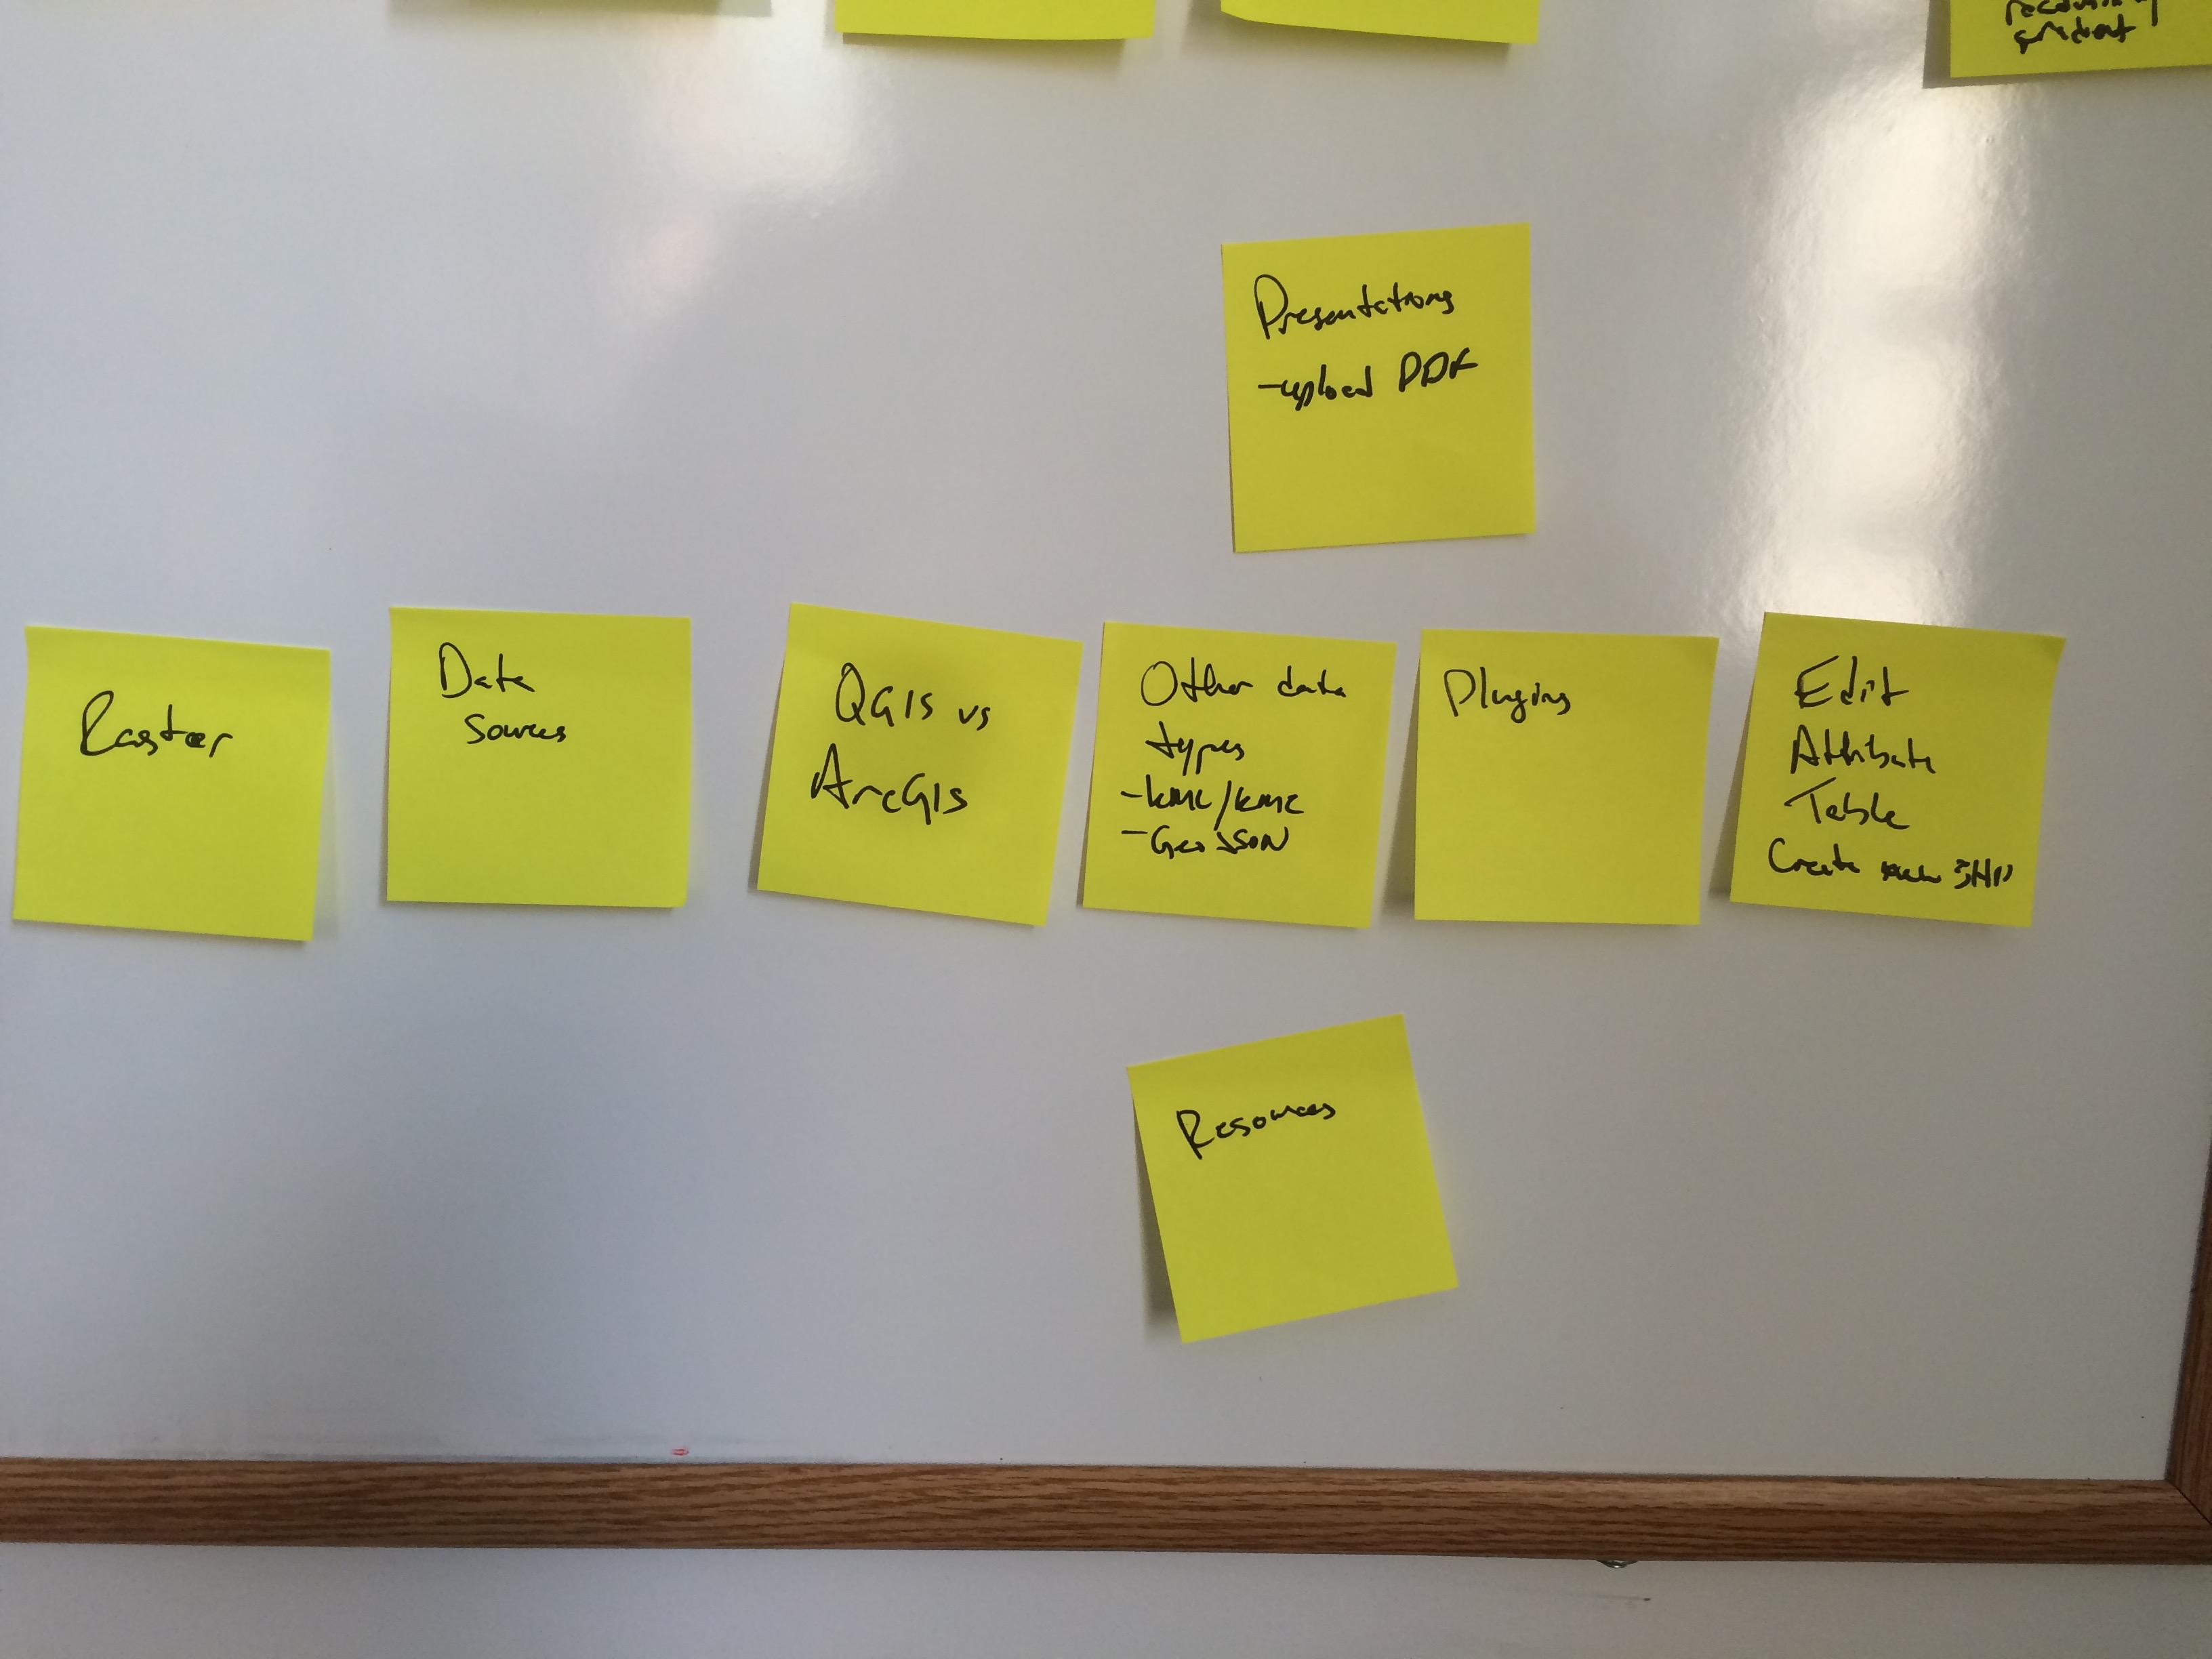 Presentations
-upload PDF
Raster
Data
Sources
QGIS vs
ArcGIS
Other data
types
-KML/KMZ
-GeoJSON
Plugins
Edit
Attribute
Table
Create new SHP
Resources